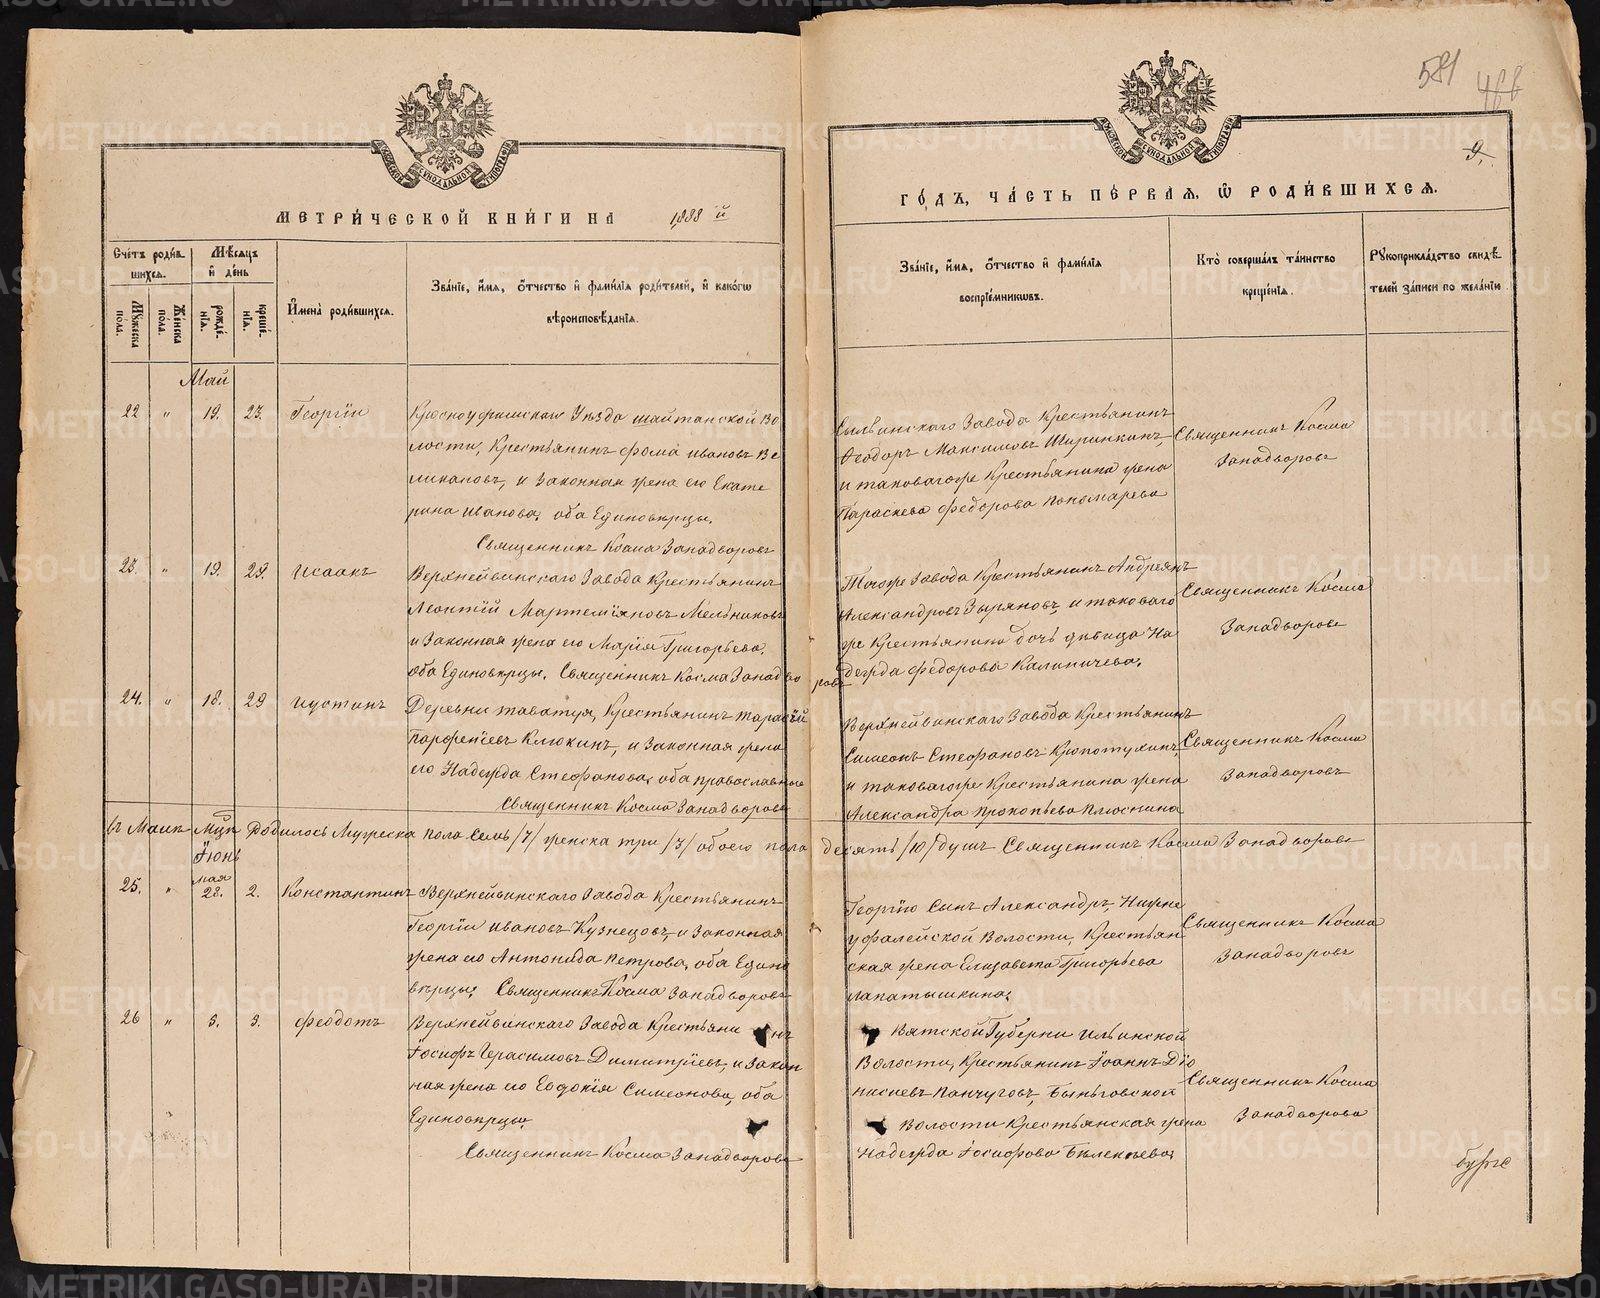 581
466
9.
МЕТРИ́ЧЕСКОЙ КНИ́ГИ НА 1888 й
ГО́ДЪ, ЧА́СТЬ ПЕ́РВАЯ, Ѡ РОДИ́ВШИХСЯ.
Сче́тъ роди́вшихся.
Му́жеска пола.
Же́нска пола.
Мѣ́сяцъ и́ де́нь
рожде́нїя.
креще́нїя.
И҆мена̀ роди́вшихся.
Зва́нїе, и҆́мя, о҆́тчество и҆ фами́лїя роди́телей, и҆ како́гѡ
вѣроисповѣ́данїя.
Зва́нїе, и҆́мя, о҆́тчество и҆ фами́лїя
воспрїе́мникѡвъ.
Кто̀ соверша́лъ та́инство
креще́нїя.
Рукоприкла́дство свидѣ́-
телей за́писи по жела́нїю.
Май
22 „ 19. 23. Георгій
Красноуфимскаго Уѣзда шайтанской Во
лости, Крестьянинъ Фома ивановъ Ве
ликановъ, и Законная жена его Екате
рина иванова, оба Единовѣрцы.
Священникъ Косма Западворовъ
Сылвинскаго Завода Крестьянинъ
Ѳеодоръ Максимовъ Ширинкинъ
и таковагоже Крестьянина жена
Параскева Федорова Пономарева
Священникъ Косма
Западворовъ
23. „ 19. 29. исаакъ
Верхнейвинскаго Завода Крестьянинъ
Леонтій Мартеміановъ Мельниковъ
и Законная жена его Марія Григорьева.
оба Единовѣрцы. Священникъ Косма Западворовъ
Тогоже Завода Крестьянинъ Андреянъ
Александровъ Зыряновъ, и таковаго
же Крестьянина дочь дѣвица На
дежда Федорова Калиничева.
Священникъ Косма
Западворовъ
24. „ 18. 29 иустинъ
Деревни таватуя, Крестьянинъ тарасій
Парфеніевъ Клюкинъ, и Законная жена
его Надежда Стефанова, оба православные
Священникъ Косма Западворовъ
Верхнейвинскаго Завода Крестьянинъ
Симеонъ Стефановъ Кропотухинъ,
и таковагоже Крестьянина жена
Александра прокопьева Плюснина
Священникъ Косма
Западворовъ
въ Маиѣ Мцѣ Родилось Мужеска пола Семь /7/ женска три /3/ обоего пола десять /10/ душъ Священникъ Косма Западворовъ
Іюнь
25. „ мая 28. 2. Константинъ
Верхнейвинскаго Завода Крестьянинъ
Георгій ивановъ Кузнецовъ, и Законная
жена его Антонида петрова, оба Едино
вѣрцы; Священникъ Косма Западворовъ
Георгію Сынъ Александръ, Нижне
уфалейской Волости, Крестьян
ская жена Елизавета Григорьева
лапатышкина;
Священникъ Косма
Западворовъ
26 „ 3. 3. Феодотъ
Верхнейвинскаго Завода Крестьянинъ
Іосифъ Герасимовъ Димитріевъ, и Закон
ная жена его Евдокія Симеонова, оба
Единовѣрцы,
Священникъ Косма Западворовъ
Вятской Губерни ильинской
Волости, Крестьянинъ Іоаннъ Діо
нисіевъ панчуговъ, Быньговской
Волости Крестьянская жена
Надежда Іосифова
Священникъ Косма
Западворовъ
METRIKI.GASO-URAL.RU